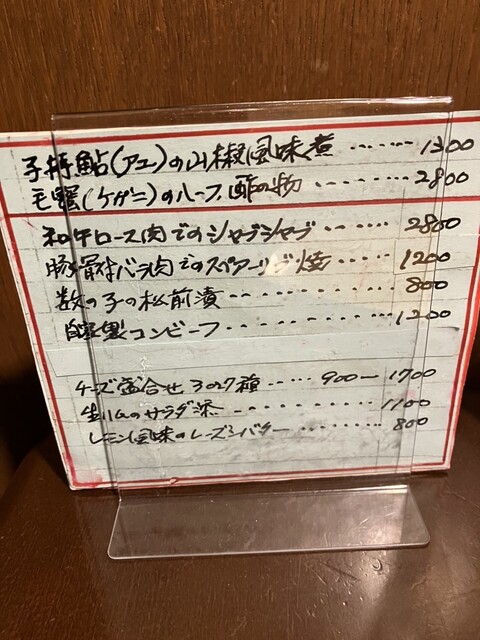 子持鮎(アユ)の山椒風味煮 ‥‥‥ 1300
毛蟹(ケガニ)のハーフ 酢の物 ‥‥‥‥ 2800
和牛ロース肉でのシャブシャブ ‥‥‥‥ 2800
豚骨付バラ肉でのスペアーリブ焼 ‥‥‥ 1200
数の子の松前漬 ‥‥‥‥‥‥ 800
自家製コンビーフ ‥‥‥‥‥‥ 1200
チーズ盛合せ 3〜7種 ‥‥‥ 900ー1700
生ハムのサラダ添 ‥‥‥‥‥‥ 1100
レモン風味のレーズンバター ‥‥‥‥‥ 800